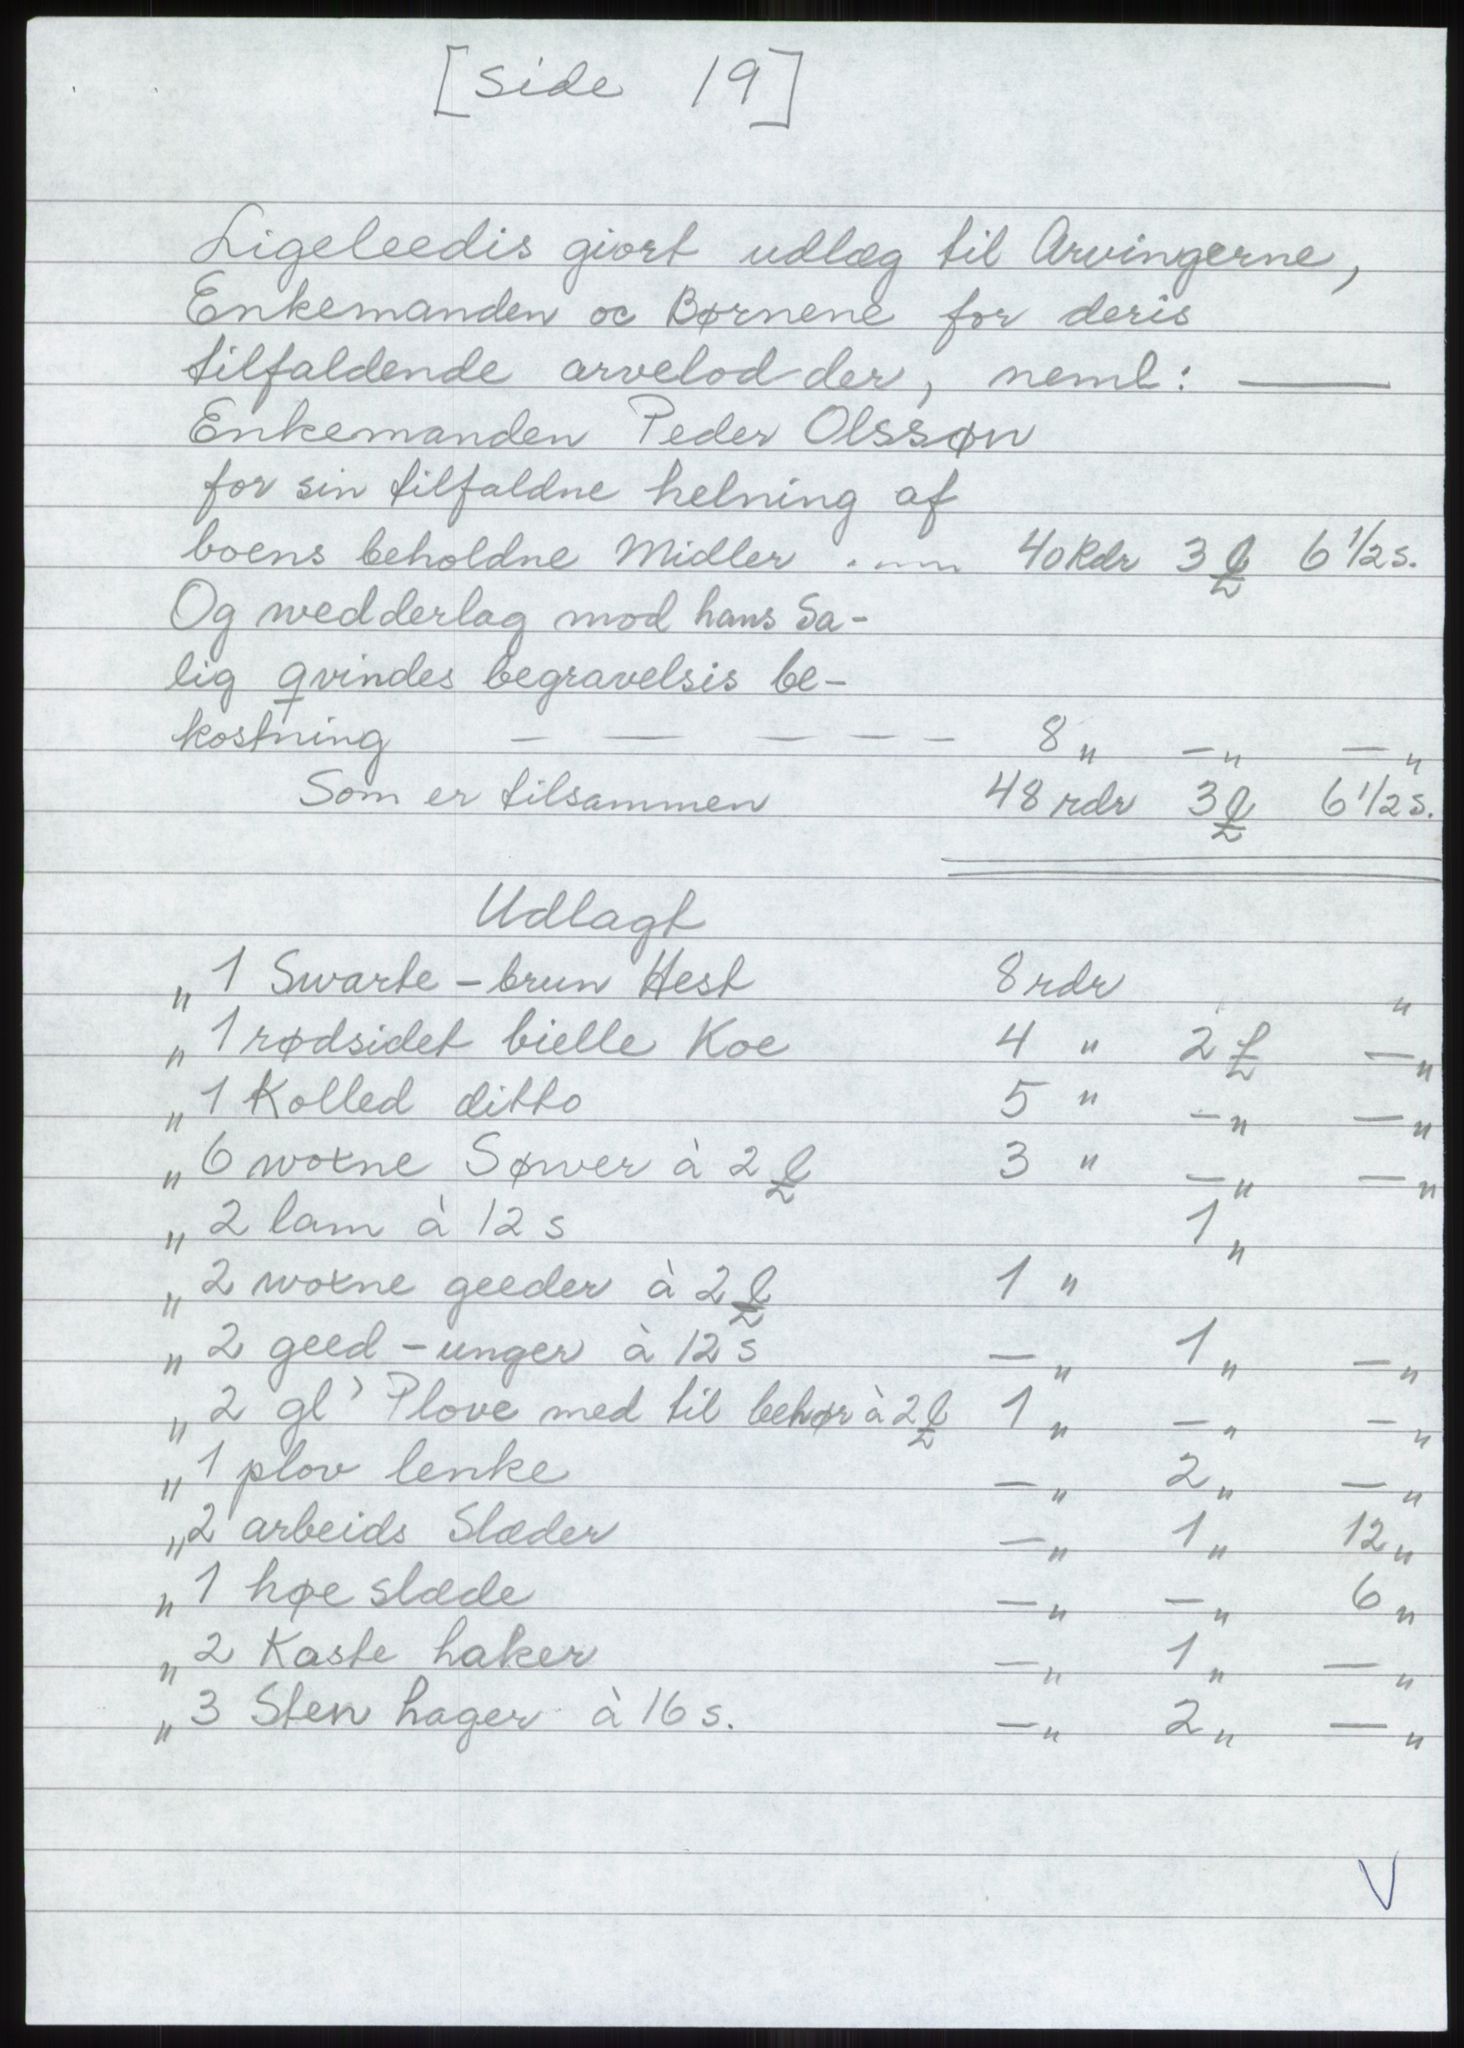 [side 19]
Ligeleedis giort udlæg til Arvingerne,
Enkemanden oc Børnene for deris
tilfaldende arvelodder, neml: —
Enkemanden Peder Olssøn
for sin tilfaldne helning af
boens beholdne Midler .—— 40 Rdr 3 ₤ 6 1/2 s.
Og wedderlag mod hans Sa-
lig qvindes begravelsis be-
kostning — — — — — 8 „ — „ — „
Som er tilsammen 48 rdr 3 ₤ 6 1/2 s.
Udlagt
„ 1 Swarte-brun Hest 8 rdr „
„ 1 rødsidet bielle Koe 4 " 2 ₤ — „
„ 1 Kolled ditto 5 " — „ — „
„ 6 woxne Søwer à 2 ₤ 3 " — „ — „
„ 2 lam à 12 s 1 „
„ 2 woxne geeder à 2 ₤ 1 "
„ 2 geed-unger à 12 s — „ 1 „ — „
„ 2 gl' Plove med til behør à 2 ₤ 1 „ — „ — „
„ 1 plov lenke — „ 2 „ — „
„ 2 arbeids Slæder — „ 1 „ 12 „
„ 1 høe slæde — „ — „ 6 „
„ 2 Kaste haker — „ 1 „ — „
„ 3 Sten hager à 16 s. — „ 2 „ — „
V